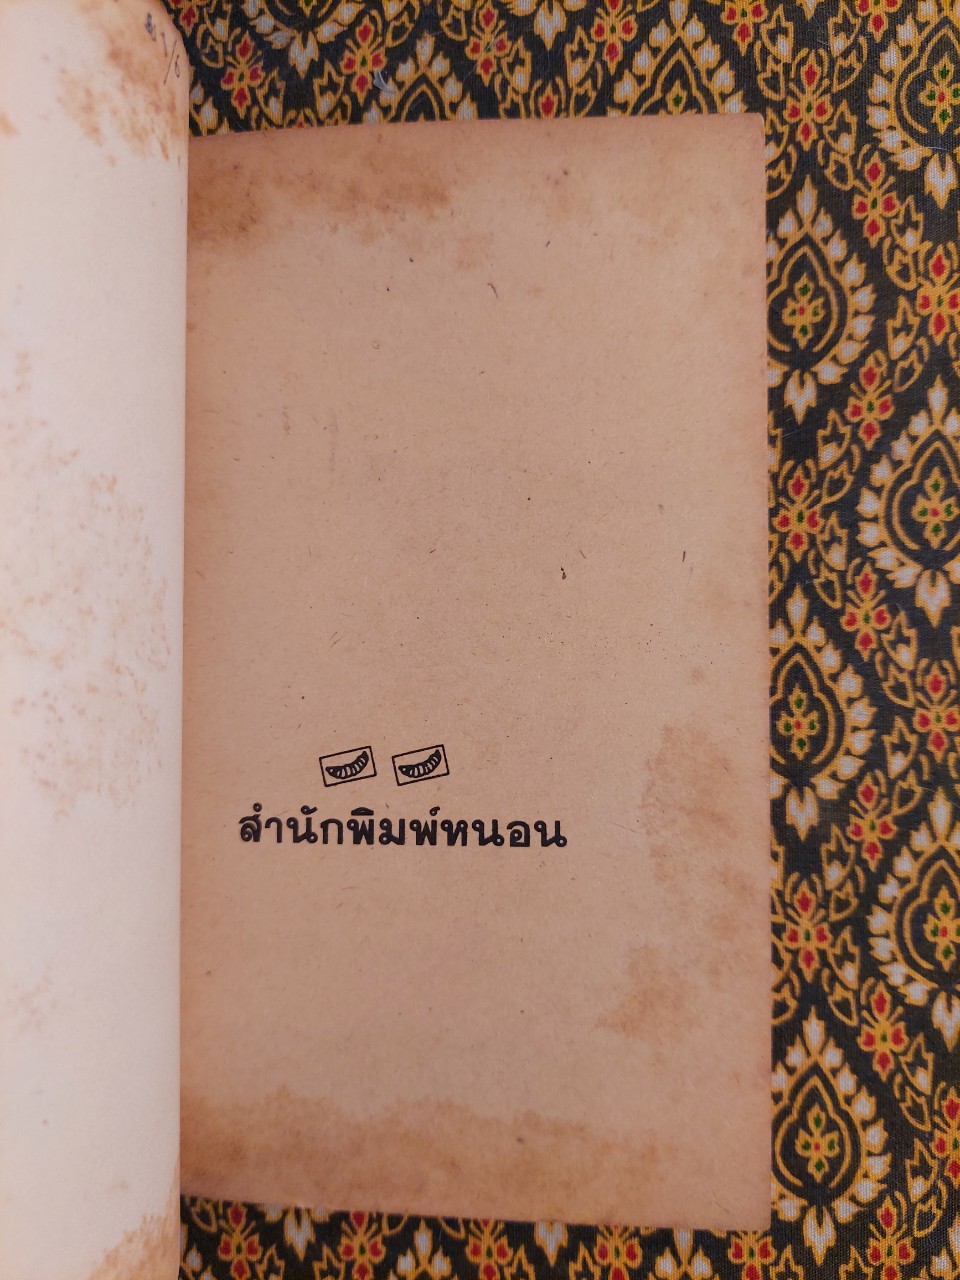 สำนักพิมพ์หนอน